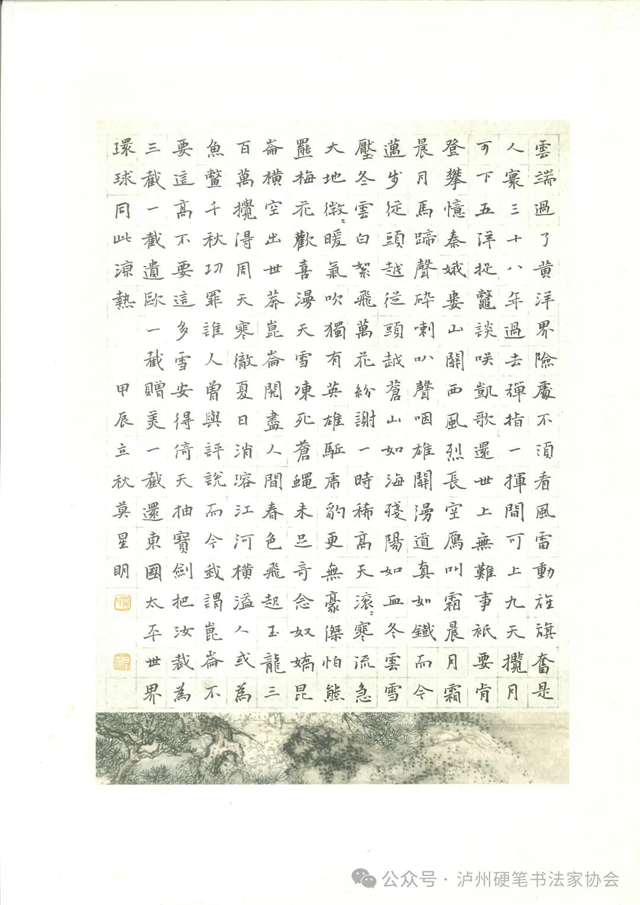 雲端過了黃洋界險處不須看風雷動旌旗奮是
人寰三十八年過去彈指一揮間可上九天攬月
可下五洋捉鱉談笑凱歌還世上無難事衹要肯
登攀憶秦娥婁山關西風烈長空雁叫霜晨月霜
晨月馬蹄聲碎喇叭聲咽雄關漫道真如鐵而今
邁步從頭越從頭越蒼山如海殘陽如血冬雲雪
壓冬雲白絮飛萬花紛謝一時稀高天滾〻寒流急
大地微〻暖氣吹獨有英雄驅虎豹更無豪傑怕熊
罷梅花歡喜漫天雪凍死蒼蠅未足奇念奴嬌昆
崙橫空出世莽崑崙閱盡人間春色飛起玉龍三
百萬攪得周天寒徹夏日消溶江河橫溢人或為
魚鱉千秋功罪誰人曾與評說而今我謂崑崙不
要這高不要這多雪安得倚天抽寶劍把汝裁為
三截一截遺歐一截贈美一截還東國太平世界
環球同此涼熱 甲辰立秋莫星明
公众号·泸州硬笔书法家协会